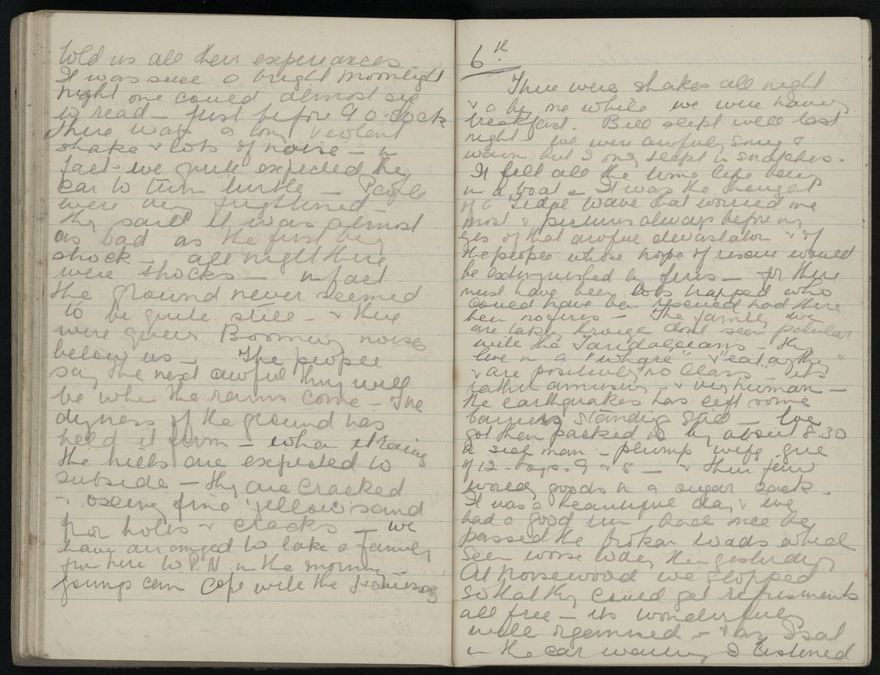 told us all their experiences
It was such a bright moonlight
night one could almost see
to read – just before 9 o.clock
there was a long & violent
shake & lots of noise – in
fact we quite expected the
car to turn turtle – People
were very frightened –
they said it was almost
as bad as the first big
shock – all night there
were shocks – in fact
the ground never seemed
to be quite still – & there
were queer Booming noises
below us – The people
say the next awful thing will
be when the rains come – The
dryness of the ground has
held it firm – when it rains
the hills are expected to
subside – they are cracked
& oozing fine yellow sand
from holes & cracks – we
have arranged to take a family
from here to P.N in the morning –
gumps can cope with the
6th
There were shakes all night
& a big one while we were having
breakfast. Bill slept well last
night & we were awfully snug &
warm but I only slept in snatches.
It felt all the time like being
in a boat – It was the thought
of a Tidal wave that worried me
most & pictures always before my
eyes of that awful devastation & of
the people whose hope of rescue would
be extinguished by fires – for there
must have been lots trapped who
could have been rescued had there
been no fires – The family we
are taking through dont seem popular
with the Taradaleans – they
live in a "whare" & "eat anything"
& are positively "no class" – its
rather amusing & very human –
the earthquakes has left some
barriers standing still – we
got them packed in by about 8.30
a sick man – plump wife girl
of 12 – boys 9 & 8 – & their few
worldly goods in a sugar sack.
It was a beautiful day & we
had a good run back once we
passed the broken roads which
seem worse today than yesterday
At Norsewood we stopped
so that they could get refreshments
all free – its wonderfully
well organised – & as I sat
in the car waiting I listened